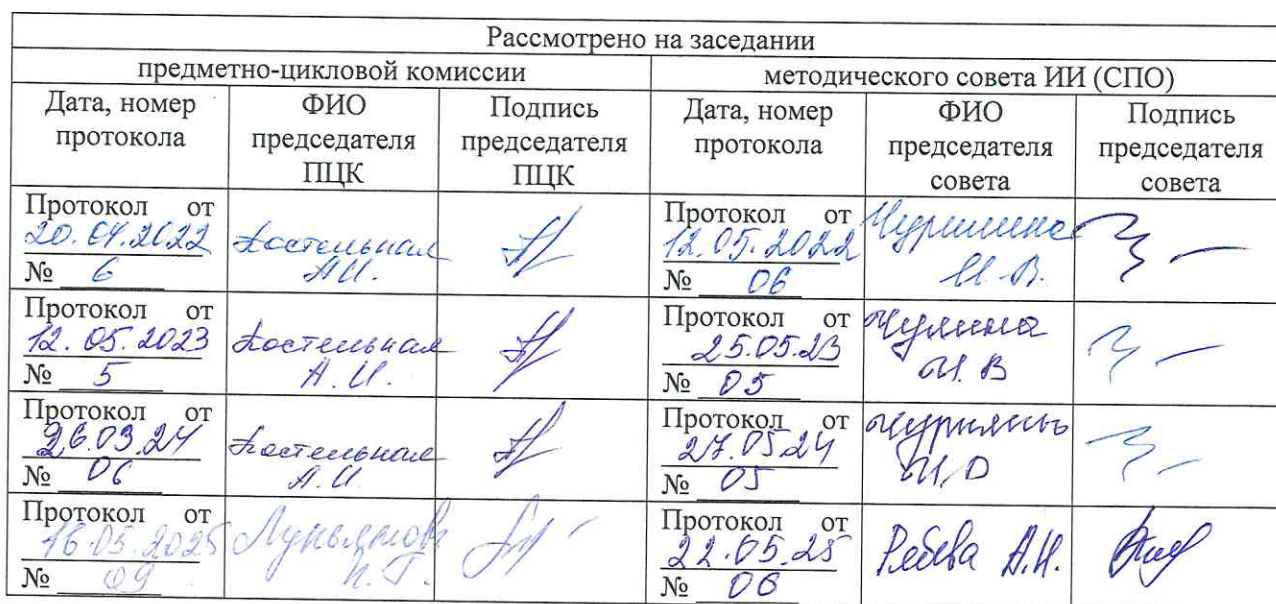 Рассмотрено на заседании
предметно-цикловой комиссии
методического совета ИИ (СПО)
Дата, номер
протокола
ФИО
председателя
ПЦК
Подпись
председателя
ПЦК
Дата, номер
протокола
ФИО
председателя
совета
Подпись
председателя
совета
Протокол от
20.04.2022
№ 6
Костельная
А.И.
Протокол от
12.05.2022
№ 06
И.В.
Протокол от
12.05.2023
№ 5
Костельная
А.И.
Протокол от
25.05.23
№ 05
И.В
Протокол от
26.03.24
№ 06
Костельная
А.И.
Протокол от
27.05.24
№ 05
Протокол от
16.05.2025
№ 09
Протокол от
22.05.25
№ 06
А.Н.